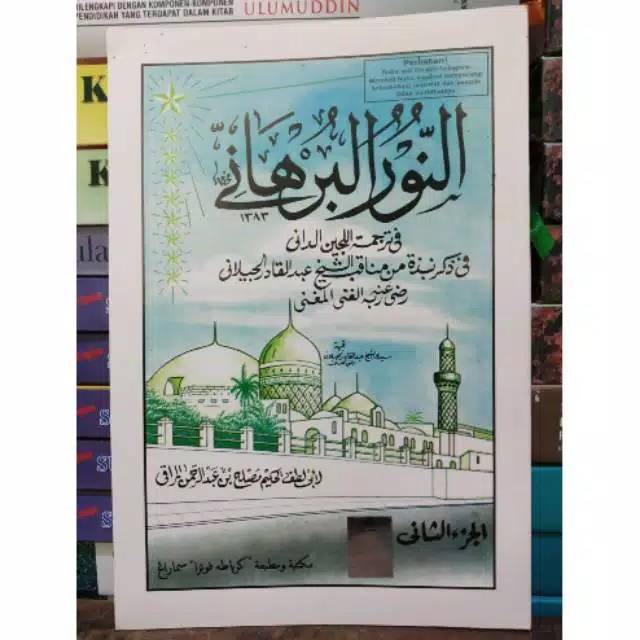 DILENGKAPI DENGAN KOMPONEN-KOMPONEN
PENDIDIKAN YANG TERDAPAT DALAM KITAB
ULUMUDDIN
Perhatian!
النُّورُ الْبُرْهَانِيّ
١٣٨٣
فى ترجمة اللجين الدانى
فى ذكر نبذة من مناقب الشيخ عبدالقادر الجيلانى
رضى عنه ربه الغنى المغنى
قبة
لابى لطف الحكيم مصلح بن عبدالرحمن المراقى
الجزء الثانى
مكتبة ومطبعة "كرياطه فوترا" سماراڠ